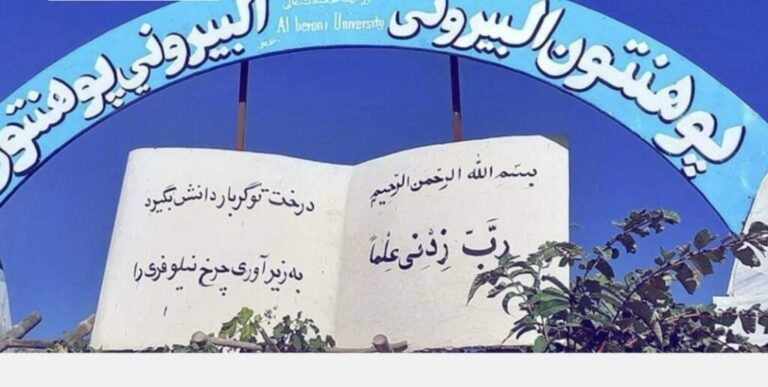 پوهنتون البیرونی
Al beroni University
البيروني پوهنتون
بسم الله الرحمن الرحیم
رَبِّ زِدْنی عِلْماً
درخت تو گر بار دانش بگیرد
به زیر آوری چرخ نیلوفری را